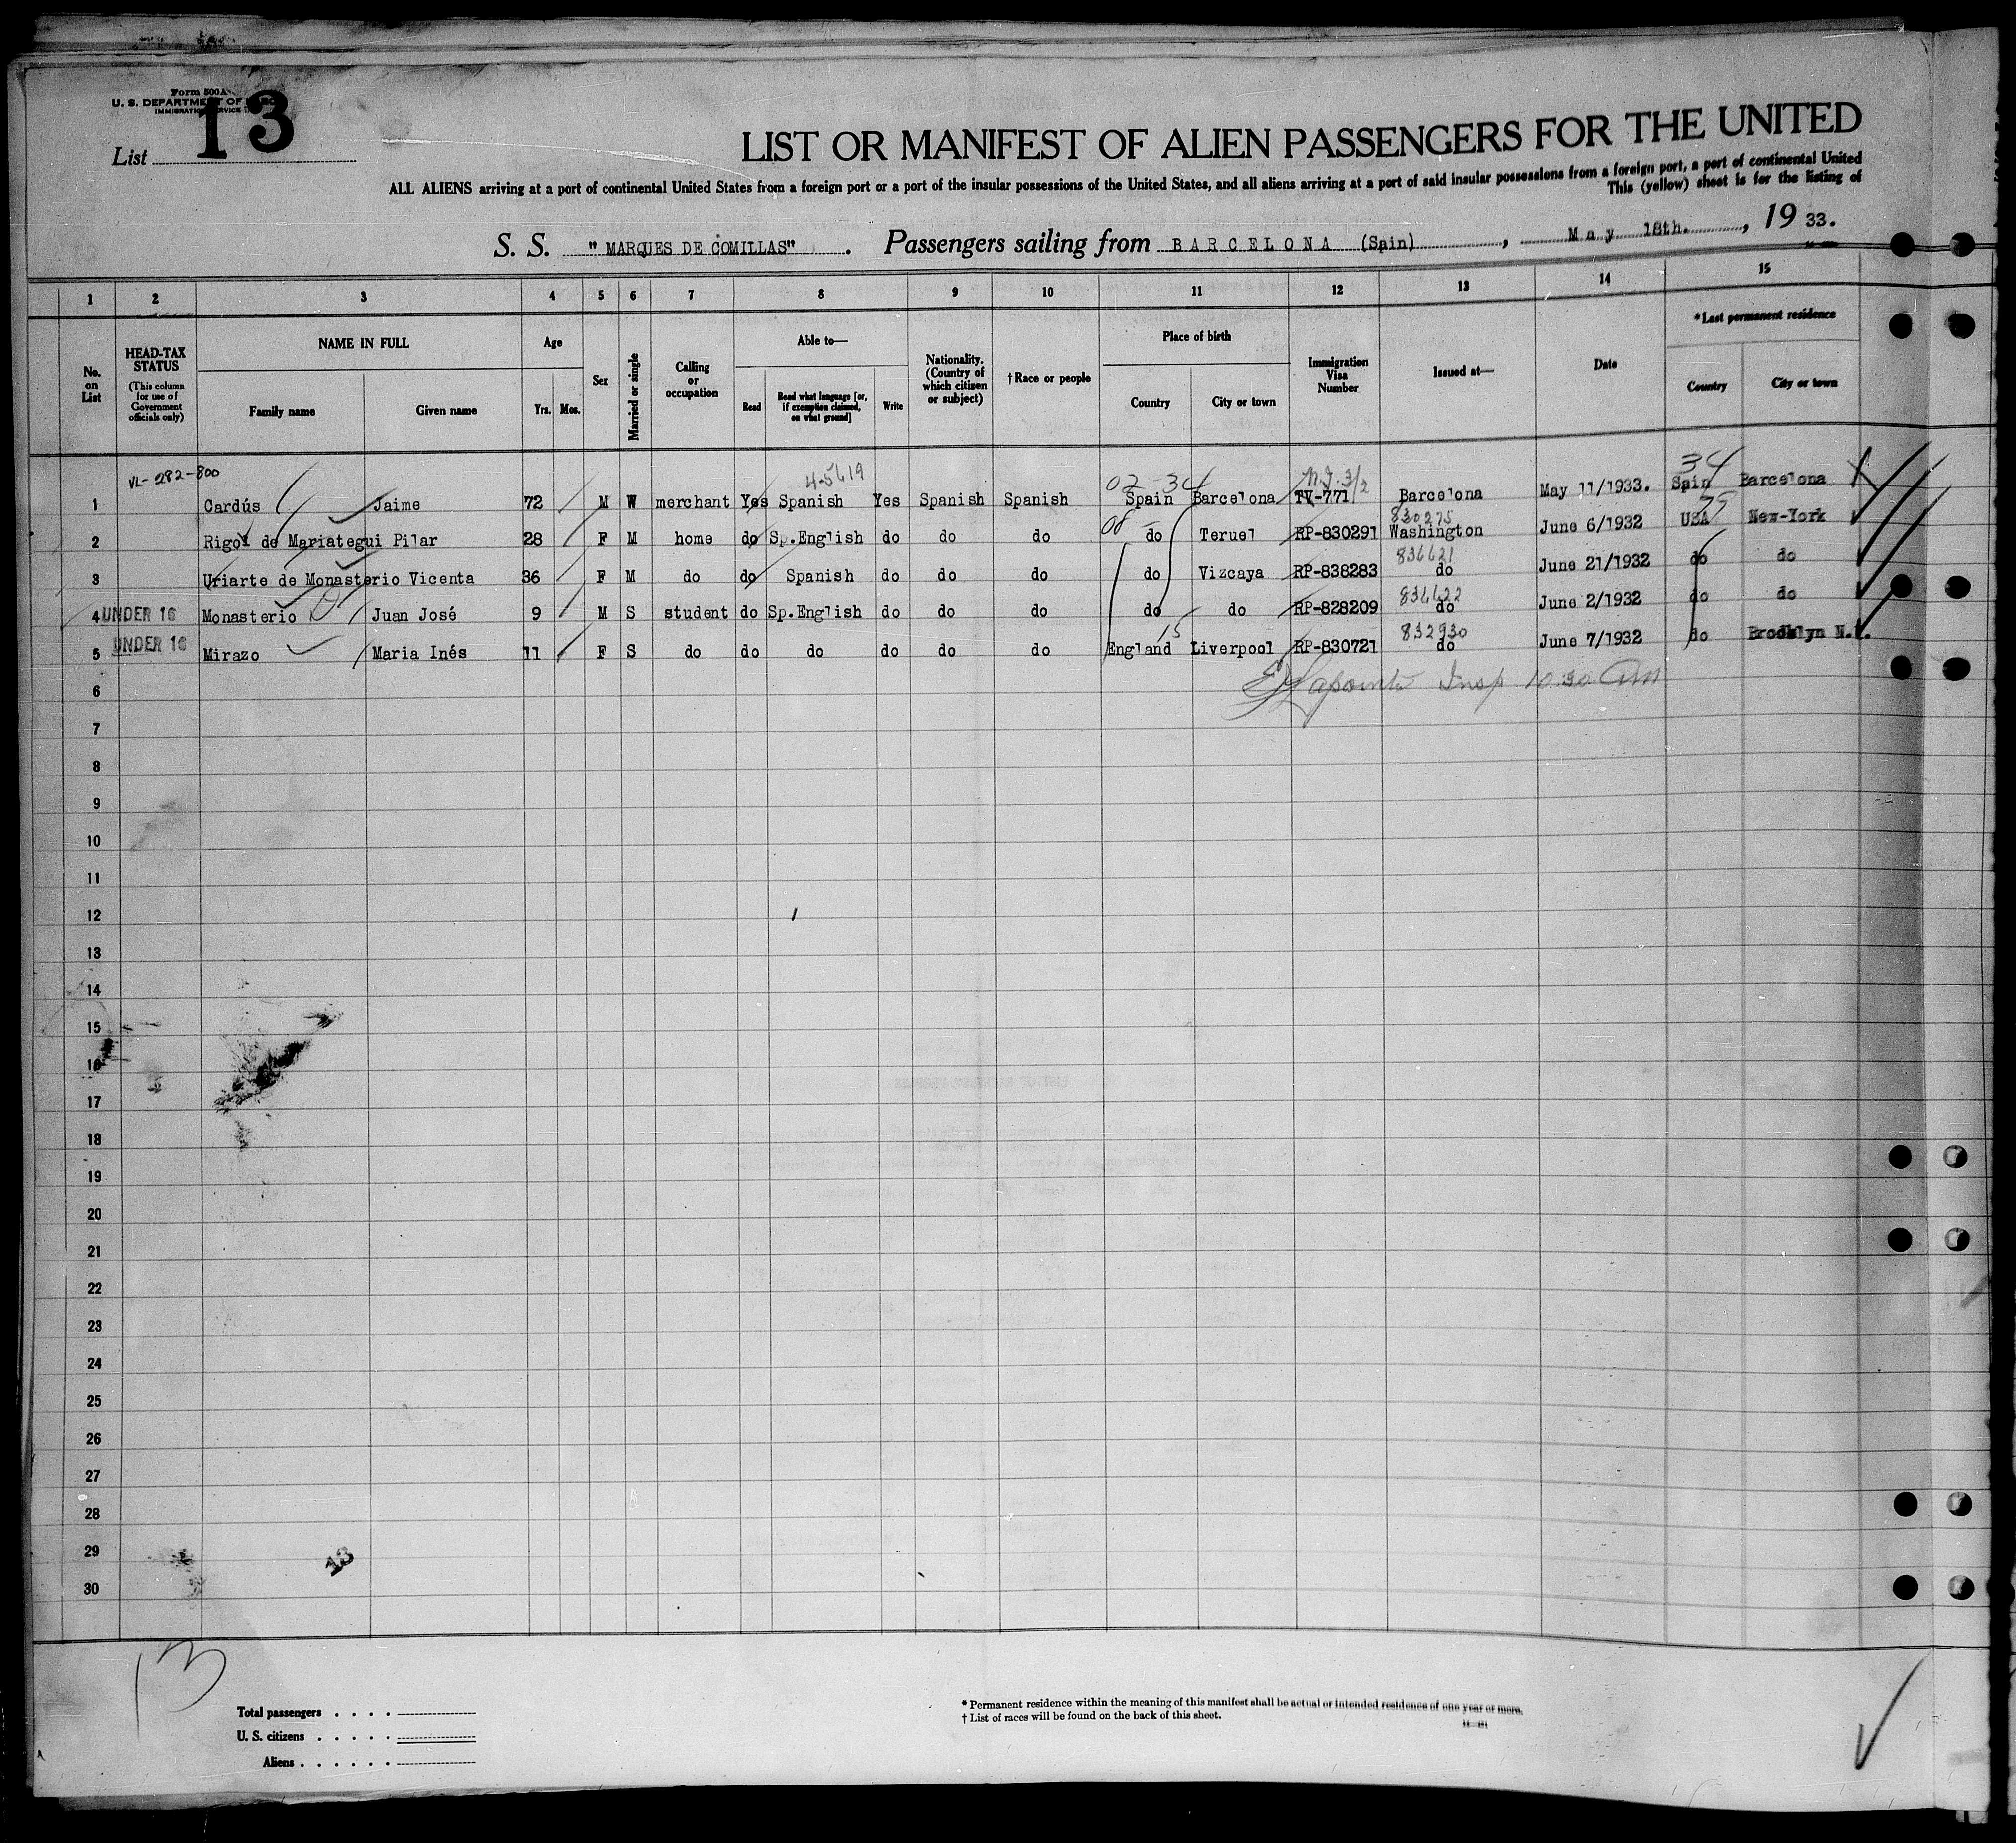 Form 500A
U. S. DEPARTMENT OF LABOR
IMMIGRATION SERVICE
List 13
LIST OR MANIFEST OF ALIEN PASSENGERS FOR THE UNITED
ALL ALIENS arriving at a port of continental United States from a foreign port or a port of the insular possessions of the United States, and all aliens arriving at a port of said insular possessions from a foreign port, a port of continental United
This (yellow) sheet is for the listing of
S. S. "MARQUES DE COMILLAS". Passengers sailing from BARCELONA (Spain), May 18th., 1933.
1 2 3 4 5 6 7 8 9 10 11 12 13 14 15
No. on List
HEAD-TAX STATUS
(This column for use of Government officials only)
NAME IN FULL
Family name Given name
Age
Yrs. Mos.
Sex
Married or single
Calling or occupation
Able to—
Read Read what language [or, if exemption claimed, on what ground] Write
Nationality. (Country of which citizen or subject)
†Race or people
Place of birth
Country City or town
Immigration Visa Number
Issued at—
Date
*Last permanent residence
Country City or town
VL-282-800 4-5619 02-34 34
1 Cardús Jaime 72 M W merchant Yes Spanish Yes Spanish Spanish Spain Barcelona TV-771 3/2 Barcelona May 11/1933. Spain Barcelona
08 830275 75
2 Rigol de Mariategui Pilar 28 F M home do Sp.English do do do do Teruel RP-830291 Washington June 6/1932 USA New-York
836621
3 Uriarte de Monasterio Vicenta 36 F M do do Spanish do do do do Vizcaya RP-838283 do June 21/1932 do do
836622
4 UNDER 16 Monasterio Juan José 9 M S student do Sp.English do do do do do RP-828209 do June 2/1932 do do
15 832930
5 UNDER 16 Mirazo Maria Inés 11 F S do do do do do do England Liverpool RP-830721 do June 7/1932 do Brooklyn N.Y.
Lapointe Insp 10:30 Am
6
7
8
9
10
11
12
13
14
15
16
17
18
19
20
21
22
23
24
25
26
27
28
29
30
13
13
Total passengers . . . .
U. S. citizens . . . . .
Aliens . . . . . .
* Permanent residence within the meaning of this manifest shall be actual or intended residence of one year or more.
† List of races will be found on the back of this sheet.